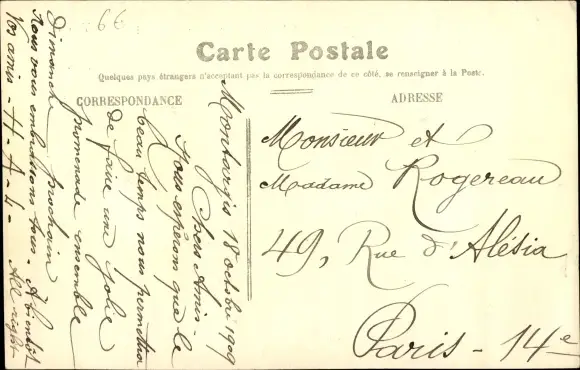 66
Carte Postale
Quelques pays étrangers n'acceptant pas la correspondance de ce côté, se renseigner à la Poste.
CORRESPONDANCE
ADRESSE
Montargis 18 octobre 1909
Chers Amis -
Nous espérons que le
beau temps nous permettra
de faire une jolie
promenade ensemble
Dimanche prochain
Nous vous embrassons tous - A bientôt
Vos amis - H - A - L - All right
Monsieur et
Madame Rogereau
49, Rue d'Alésia
Paris - 14e